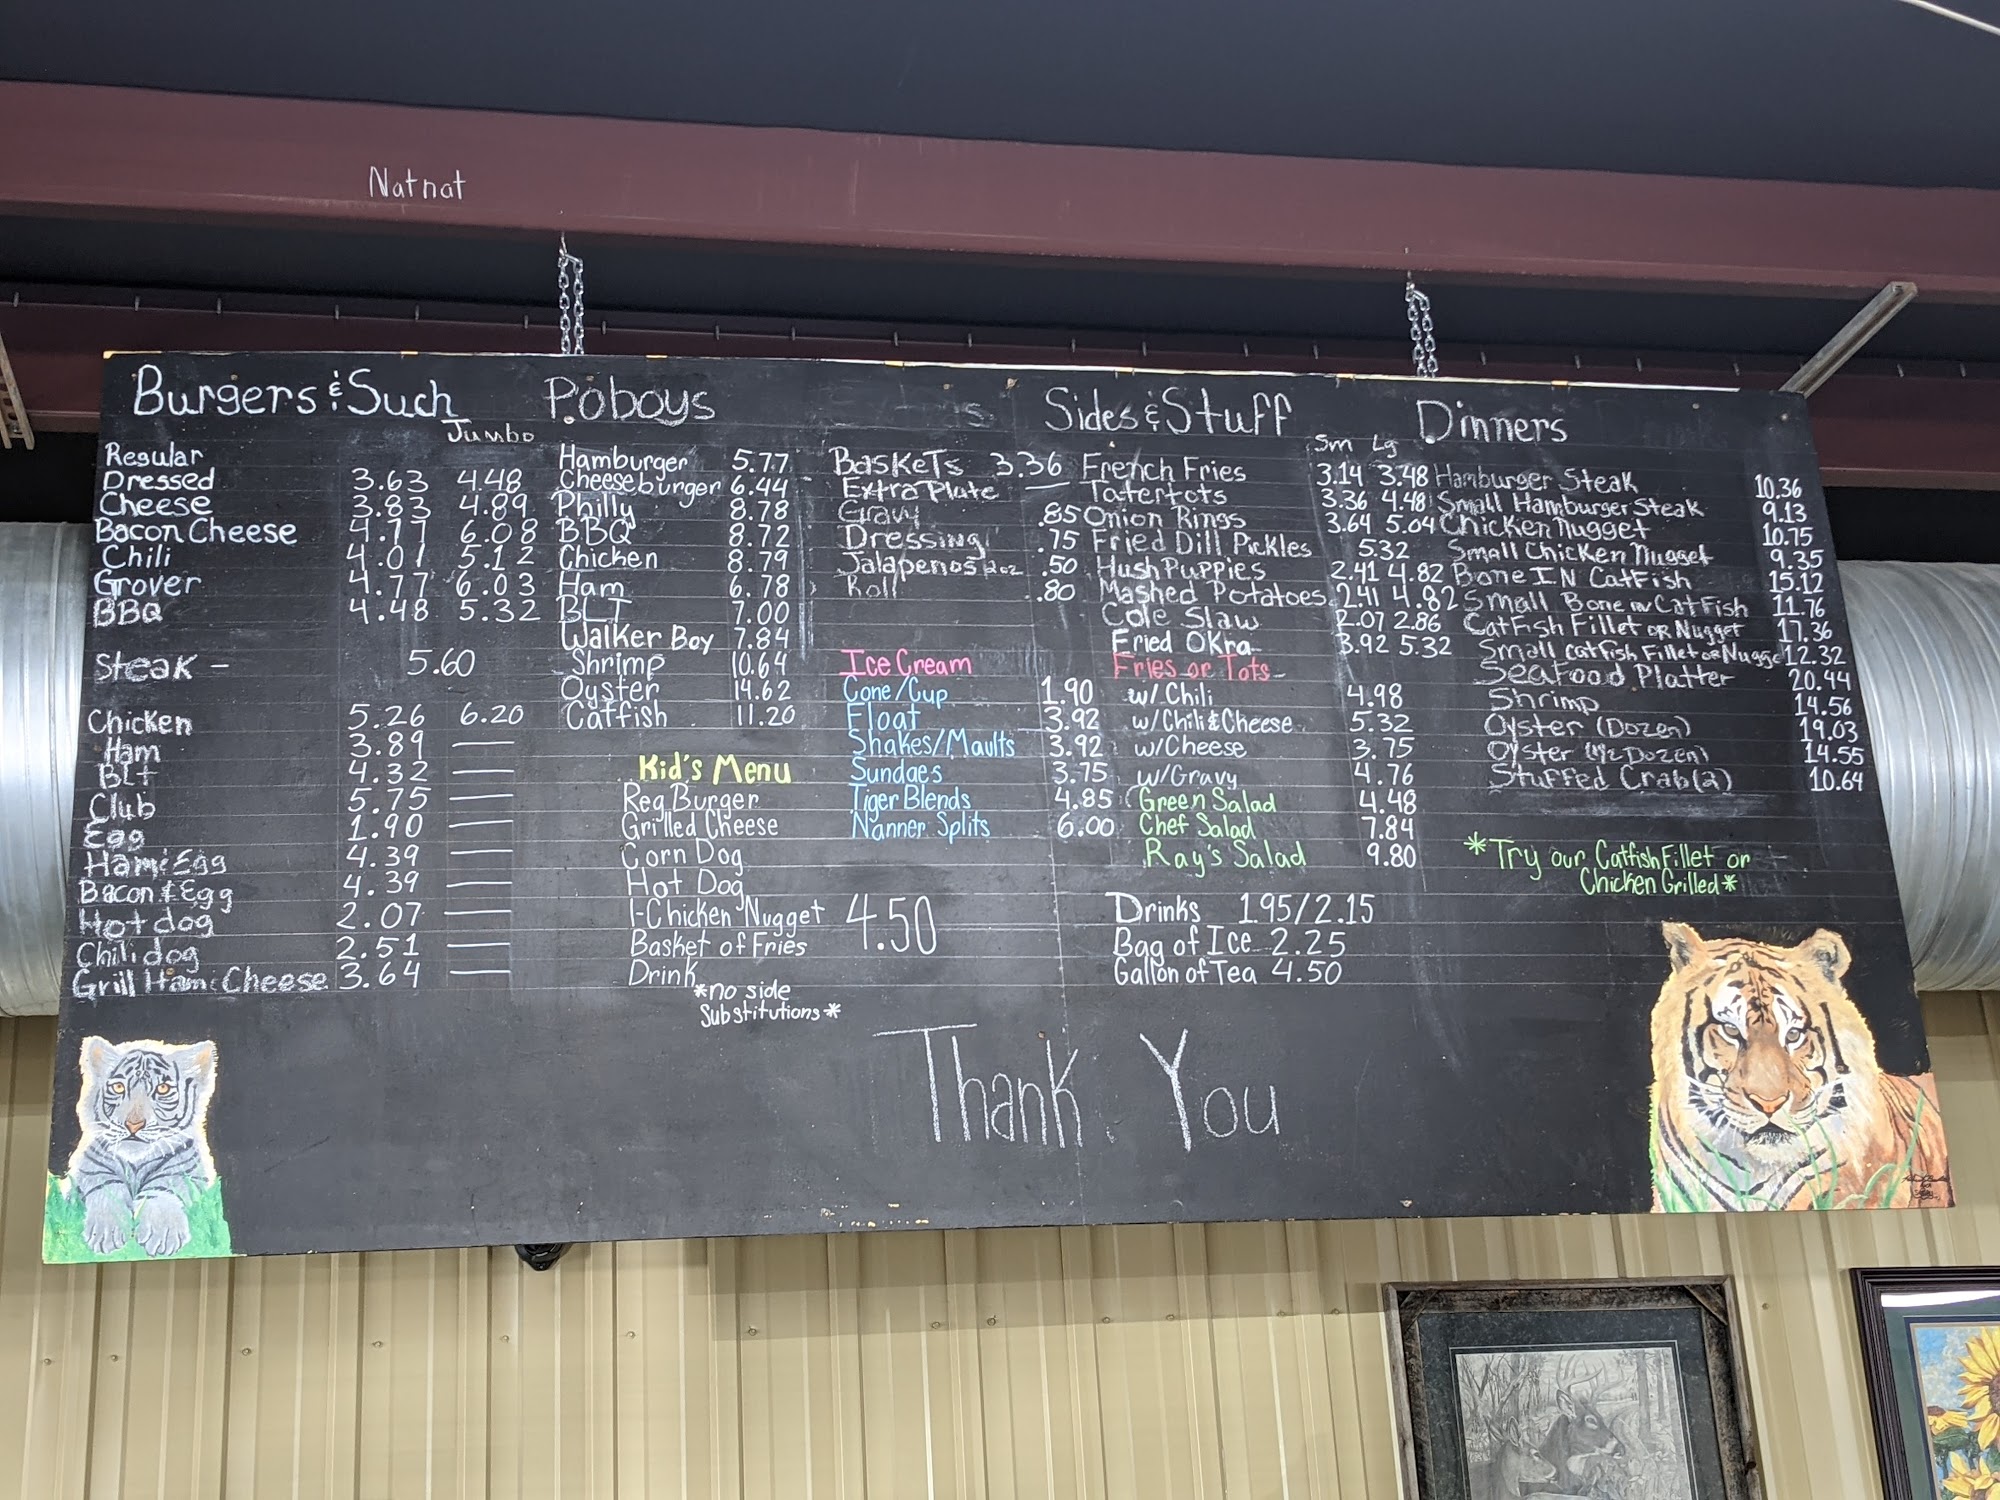 Natnat
Burgers & Such
Jumbo
Regular
Dressed 3.63 4.48
Cheese 3.83 4.89
Bacon Cheese 4.77 6.08
Chili 4.01 5.12
Grover 4.77 6.03
BBQ 4.48 5.32
Steak - 5.60
Chicken 5.26 6.20
Ham 3.89 —
BLt 4.32 —
Club 5.75 —
Egg 1.90 —
Ham & Egg 4.39 —
Bacon & Egg 4.39 —
Hot dog 2.07 —
Chili dog 2.51 —
Grill Ham & Cheese 3.64 —
Poboys
Hamburger 5.77
Cheeseburger 6.44
Philly 8.78
BBQ 8.72
Chicken 8.79
Ham 6.78
BLT 7.00
Walker Boy 7.84
Shrimp 10.64
Oyster 14.62
Catfish 11.20
Kid's Menu
Reg Burger
Grilled Cheese
Corn Dog
Hot Dog
1-Chicken Nugget 4.50
Basket of Fries
Drink
*no side
Substitutions*
Baskets 3.36
Extra Plate —
Gravy .85
Dressing .75
Jalapenos 2oz .50
Roll .80
Ice Cream
Cone/Cup 1.90
Float 3.92
Shakes/Maults 3.92
Sundaes 3.75
Tiger Blends 4.85
Nanner Splits 6.00
Sides & Stuff
Sm Lg
French Fries 3.14 3.48
Tatertots 3.36 4.48
Onion Rings 3.64 5.04
Fried Dill Pickles 5.32
Hush Puppies 2.41 4.82
Mashed Potatoes 2.41 4.82
Cole Slaw 2.07 2.86
Fried Okra 3.92 5.32
Fries or Tots
w/ Chili 4.98
w/Chili & Cheese 5.32
w/Cheese 3.75
w/Gravy 4.76
Green Salad 4.48
Chef Salad 7.84
Ray's Salad 9.80
Drinks 1.95/2.15
Bag of Ice 2.25
Gallon of Tea 4.50
Dinners
Hamburger Steak 10.36
Small Hamburger Steak 9.13
Chicken Nugget 10.75
Small Chicken Nugget 9.35
Bone IN Catfish 15.12
Small Bone IN Catfish 11.76
Catfish Fillet or Nugget 17.36
Small Catfish Fillet or Nugge 12.32
Seafood Platter 20.44
Shrimp 14.56
Oyster (Dozen) 19.03
Oyster (1/2 Dozen) 14.55
Stuffed Crab (2) 10.64
*Try our Catfish Fillet or
Chicken Grilled*
Thank You